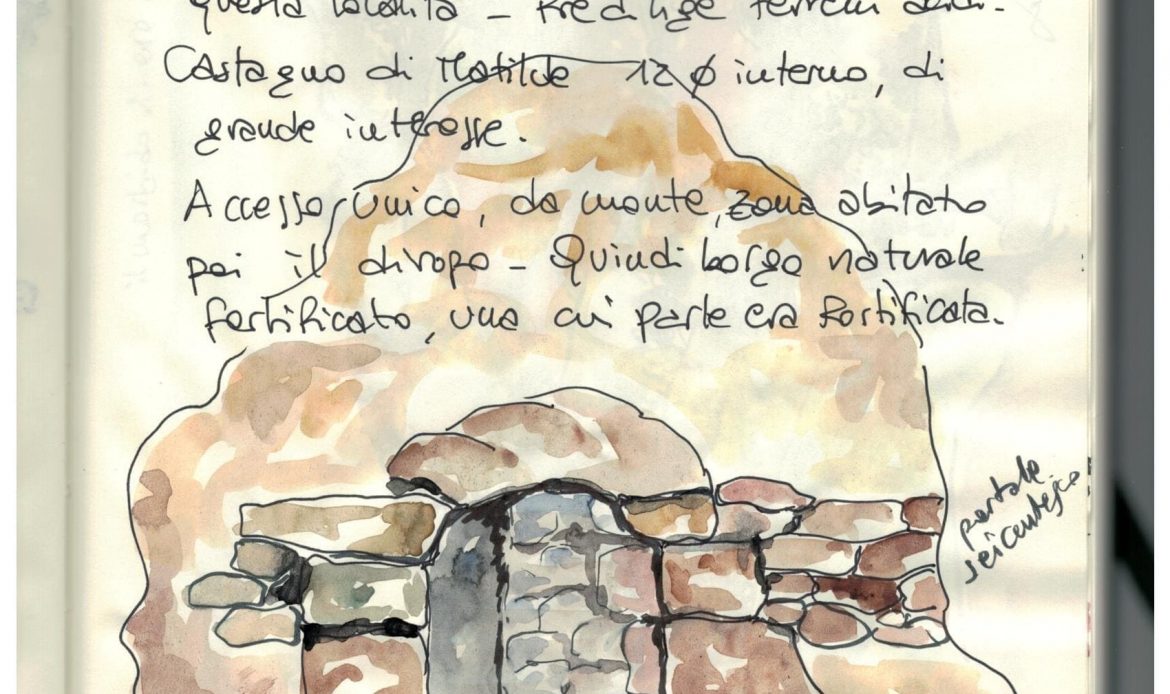 questa località – Predilige terreni acidi.
Castagno di Matilde 12 ø interno, di
grande interesse.
Accesso unico, da monte, zona abitata
poi il dirupo – Quindi borgo naturale
fortificato, una cui parte era fortificata.
portale
seicentesco